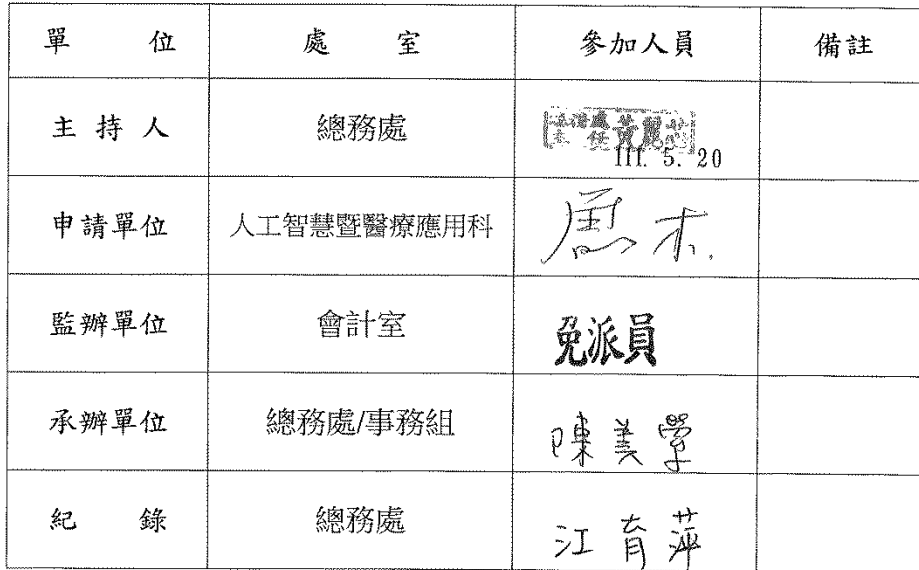 單 位 處 室 參加人員 備註
主 持 人 總務處 黃麗
111. 5. 20
申請單位 人工智慧暨醫療應用科
監辦單位 會計室 免派員
承辦單位 總務處/事務組 陳美學
紀 錄 總務處 江育萍